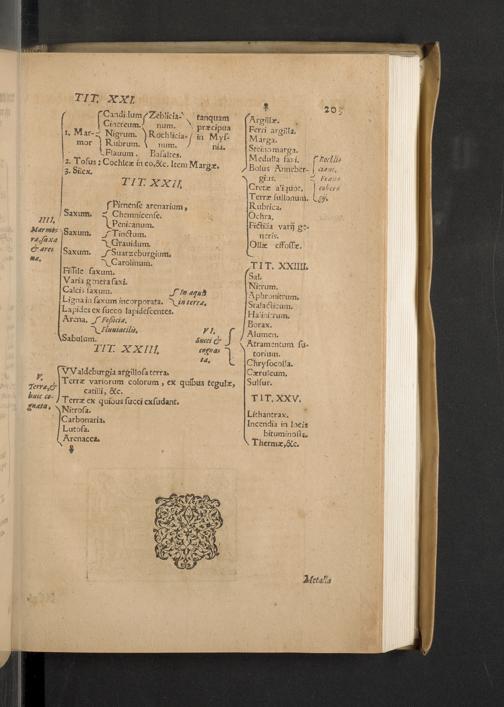 TIT. XXI.
Candidum
Cinereum.
1. Mar-
mor
Nigrum.
Rubrum.
Flauum.
Zeblicia-
num.
Rochlicia-
num.
Basaltes.
tanquam
præcipua
in Mys-
nia.
2. Tofus: Cochleæ in eo, &c. Item Margæ.
3. Silex.
TIT. XXII.
IIII.
Marmora, saxa & arena.
Saxum.
Pirnense arenarium,
Chemnicense.
Penicanum.
Saxum.
Tinctum.
Grauidum.
Saxum.
Suarzeburgium.
Carolinum.
Fissile saxum.
Varia genera saxi.
Calcis saxum.
Ligna in saxum incorporata.
In aquis
in terra.
Lapides ex succo lapidescentes.
Arena.
Fossicia.
Fluuiatilis.
Sabulum.
TIT. XXIII.
V.
Terræ, &
huic co-
gnata.
VValdeburgia argillosa terra.
Terræ variorum colorum, ex quibus tegulæ,
catilli, &c.
Terræ ex quibus succi exsudant.
Nitrosa.
Carbonaria.
Lutosa.
Arenacea.
205
Argillæ.
Ferri argilla.
Marga.
Stenomarga.
Medulla saxi.
Bolus Anneber-
gius.
Cretæ aliquot.
Terræ fullonum.
Rubrica.
Ochra.
Fictilia varij ge-
neris.
Ollæ effossæ.
VI.
Succi &
cogna-
ta.
TIT. XXIIII.
Sal.
Nitrum.
Aphronitrum.
Stalacticum.
Halinitrum.
Borax.
Alumen.
Atramentum su-
torium.
Chrysocolla.
Cæruleum.
Sulfur.
TIT. XXV.
Lithantrax.
Incendia in locis
bituminosis.
Thermæ, &c.
Metalla